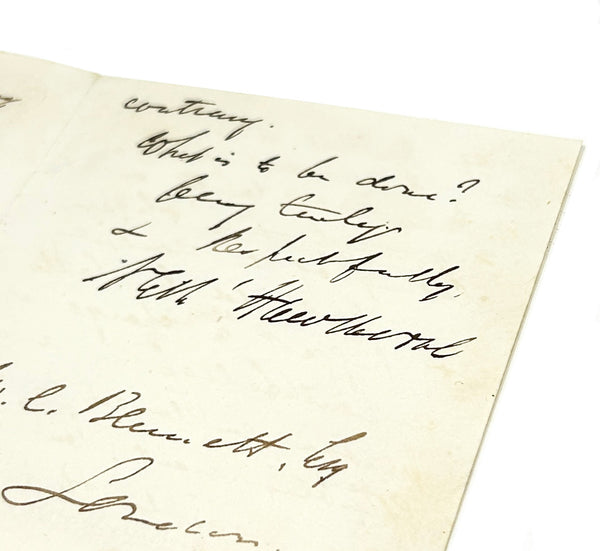 contrary.
What is to be done?
Very truly
& Respectfully,
Nath' Hawthorne
W. C. Bennett, Esq
London.